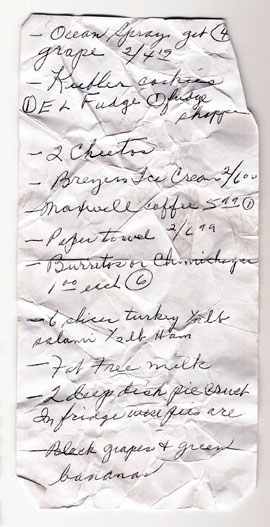 - Ocean Spray get ④
grape 2/4.00
- Keebler cookies
① E L Fudge ① fudge
shoppe
- 2 Cheetos
- Breyers Ice Cream 2/6.00
- Maxwell coffee 5.99 ①
- Paper towel 2/6.99
- Burritos or Chimichangas
1.00 each ⑥
- 6 slices turkey 1/2 lb
salami 1/2 lb Ham
- Fat Free milk
- 2 deep dish pie crust
In fridge were pies are
- Black grapes & green
bananas